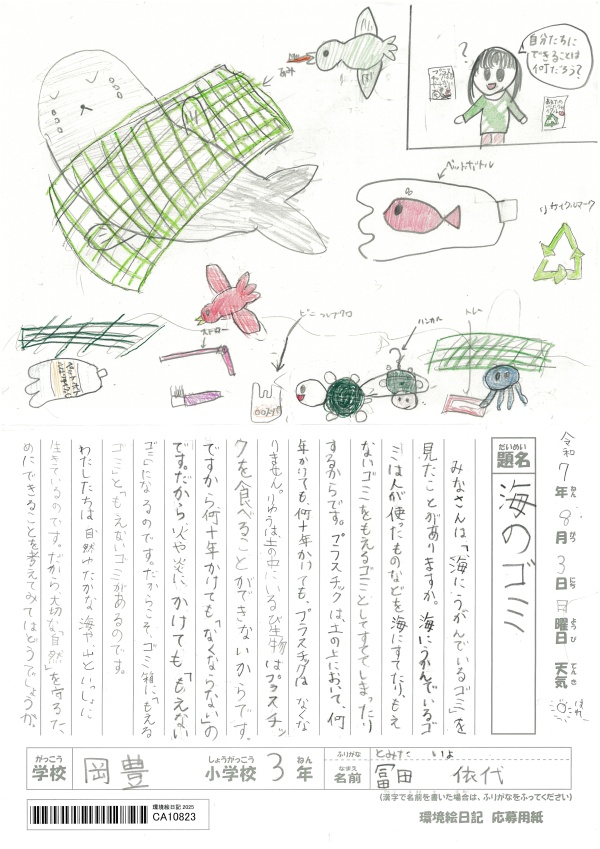 自分たちに
できることは
何だろう?
?
あみ
ペットボトル
リサイクルマーク
ストロー
ビニールブクロ
ハンガー
トレー
令和7年8月3日日曜日 天気 はれ
だいめい
題名 海のゴミ
みなさんは「海にうかんでいるゴミ」を
見たことがありますか。海にうかんでいるゴ
ミは人が使ったものなどを海にすてたり、もえ
ないゴミをもえるゴミとしてすててしまったり
するからです。プラスチックは、土の上において、何
年かけても、何十年かけても、プラスチックは、なくな
りません。りゆうは土の中にいるび生物はプラスチッ
クを食べることができないからです。
ですから何十年かけても「なくならない」の
です。だから火や炎にかけても「もえない
ゴミ」になるのです。だからこそ、ゴミ箱に「もえる
ゴミ」と「もえないゴミ」があるのです。
わたしたちは自然ゆたかな海や山といっしょに
生きているのです。だから大切な「自然」を守るた
めにできることを考えてみてはどうでしょうか。
がっこう しょうがっこう ねん
学校 岡豊 小学校 3年
ふりがな とみた いよ
なまえ
名前 冨田 依代
(漢字で名前を書いた場合は、ふりがなをふってください)
環境絵日記 2025
CA10823
環境絵日記 応募用紙